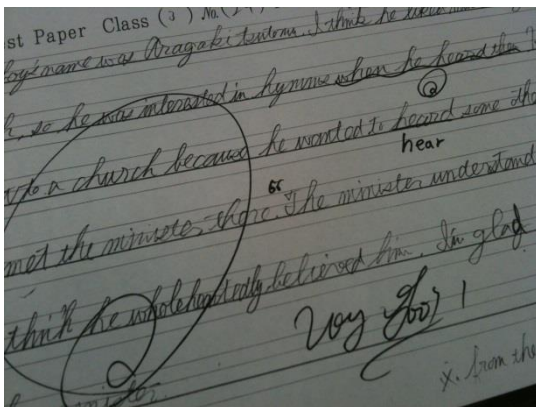 st Paper Class (3) No.(24)
oy's name was Aragaki Tsutomu. I think he
h, so he was interested in hymns when he heard then
to a church because he wanted to heard some
hear
met the minister there. The minister understand
think he wholeheartedly believed him. I'm glad
Very Good!
minister.
from the